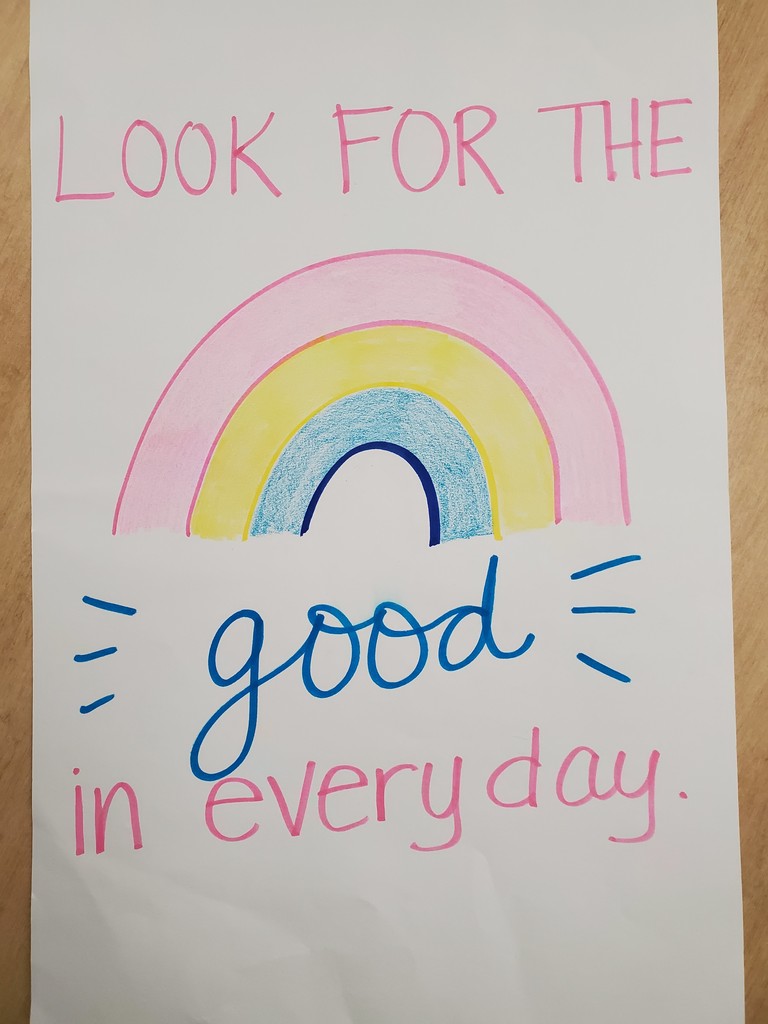 LOOK FOR THE
good
in every day.